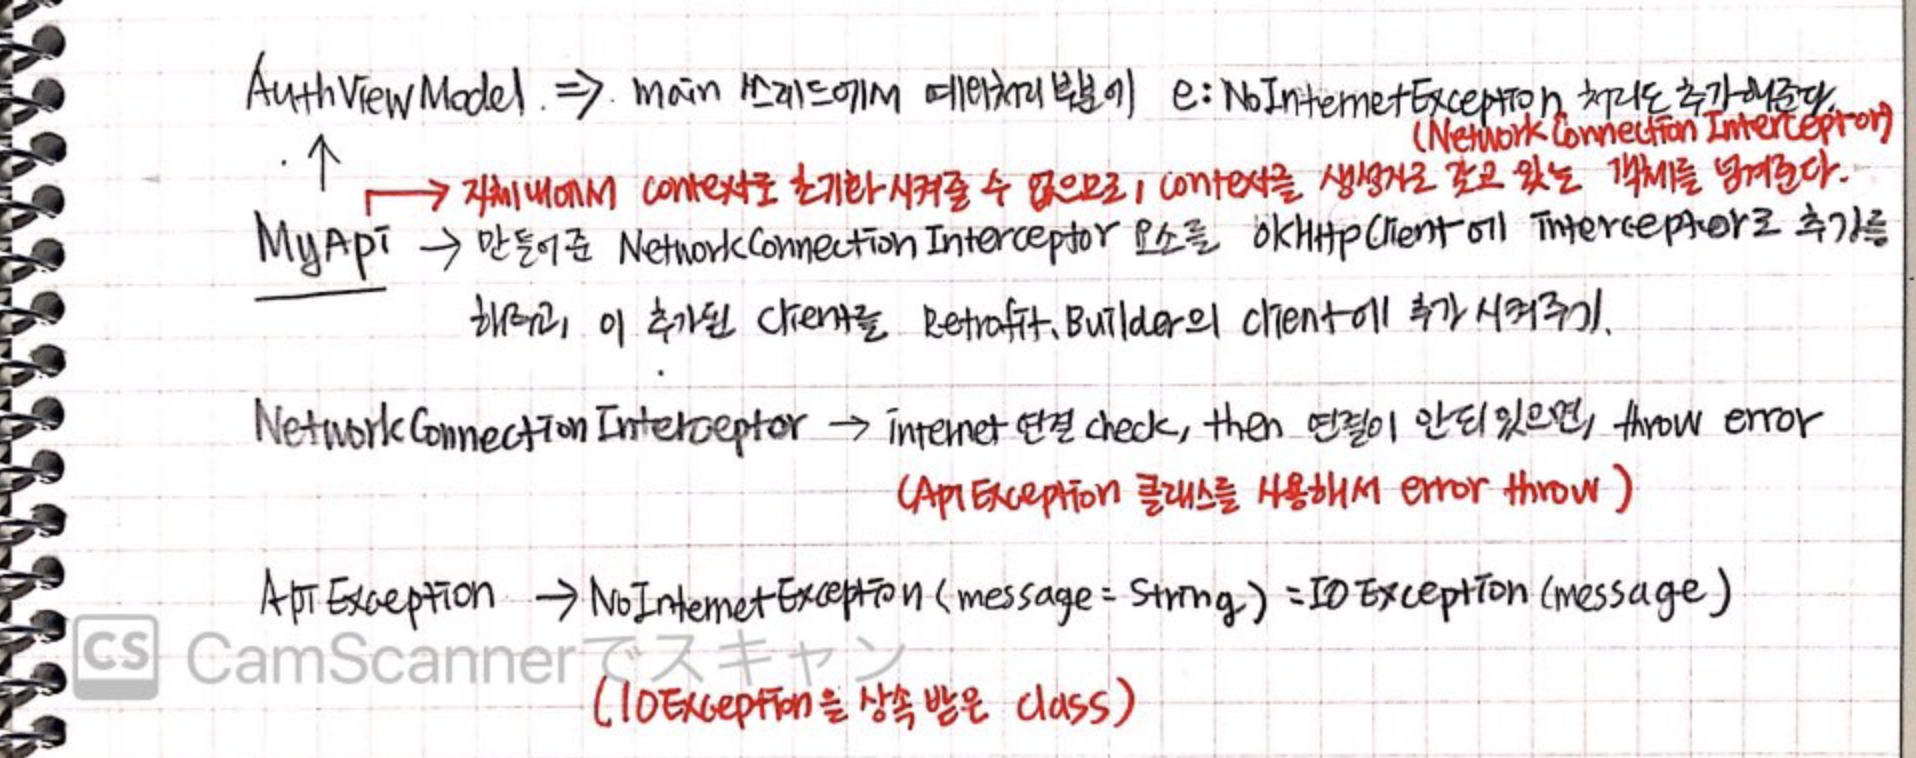 AuthViewModel ⇒ main 쓰레드에서 예외처리 부분에 e: NoInternetException 처리도 추가해준다.
(Network Connection Interceptor)
↑ → 자체내에서 context로 초기화 시켜줄 수 없으므로, context를 생성자로 갖고 있는 객체를 넘겨준다.
MyApi → 만들어준 NetworkConnectionInterceptor 요소를 okHttpClient에 Interceptor로 추가를
해주고, 이 추가된 client를 Retrofit.Builder의 client에 추가 시켜주기.
NetworkConnectionInterceptor → internet 연결 check, then 연결이 안되있으면, throw error
(ApiException 클래스를 사용해서 error throw)
ApiException → NoInternetException (message = String) = IOException (message)
CS CamScannerでスキャン
(IOException을 상속 받은 class)